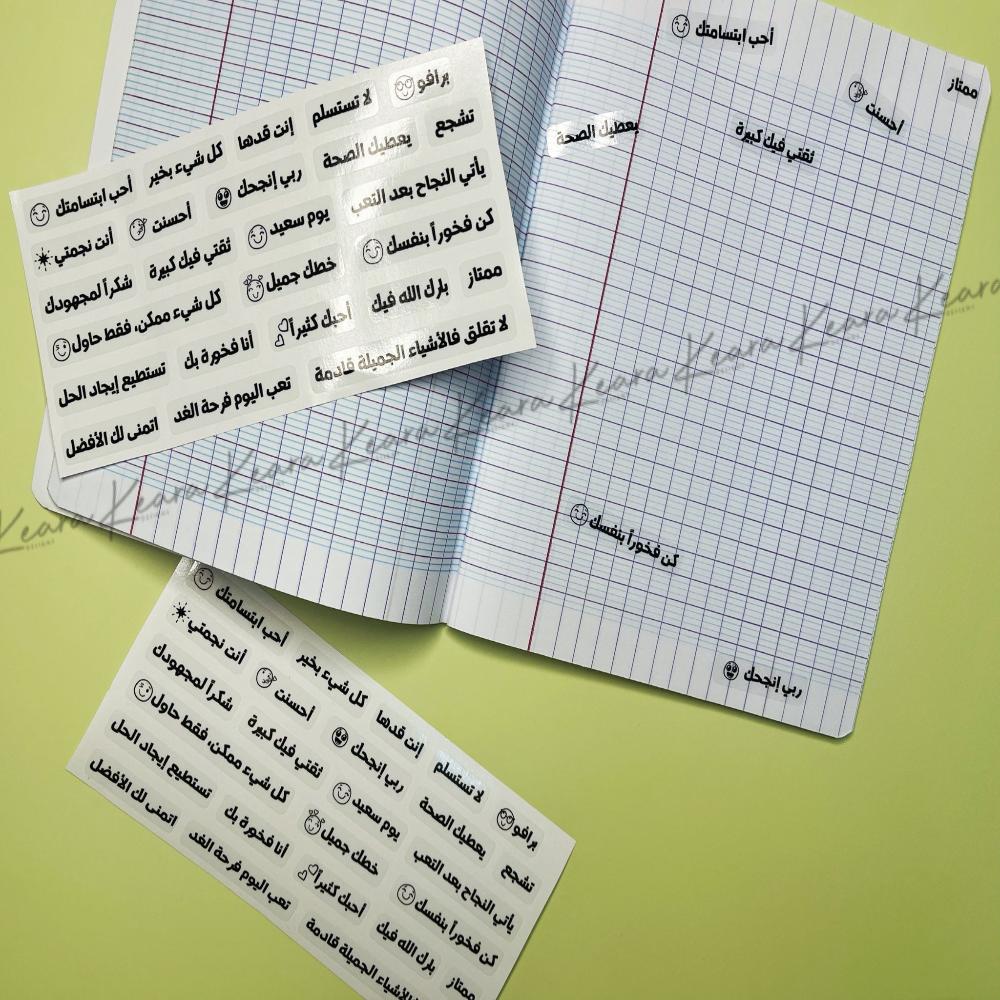 برافو
لا تستسلم
إنت قدها
كل شيء بخير
أحب ابتسامتك
تشجع
يعطيك الصحة
ربي إنجحك
أحسنت
أنت نجمتي
يأتي النجاح بعد التعب
يوم سعيد
ثقتي فيك كبيرة
شكراً لمجهودك
كن فخوراً بنفسك
خطك جميل
كل شيء ممكن، فقط حاول
ممتاز
بارك الله فيك
أحبك كثيراً
أنا فخورة بك
تستطيع إيجاد الحل
لا تقلق فالأشياء الجميلة قادمة
تعب اليوم فرحة الغد
اتمنى لك الأفضل
ممتاز
أحب ابتسامتك
أحسنت
ثقتي فيك كبيرة
يعطيك الصحة
كن فخوراً بنفسك
ربي إنجحك
Keara Keara Keara Keara Keara Keara Keara Keara Keara Keara
أحب ابتسامتك
كل شيء بخير
إنت قدها
لا تستسلم
برافو
أنت نجمتي
أحسنت
ربي إنجحك
يعطيك الصحة
تشجع
شكراً لمجهودك
ثقتي فيك كبيرة
يوم سعيد
يأتي النجاح بعد التعب
كل شيء ممكن، فقط حاول
خطك جميل
كن فخوراً بنفسك
تستطيع إيجاد الحل
أنا فخورة بك
أحبك كثيراً
بارك الله فيك
ممتاز
اتمنى لك الأفضل
تعب اليوم فرحة الغد
فالأشياء الجميلة قادمة